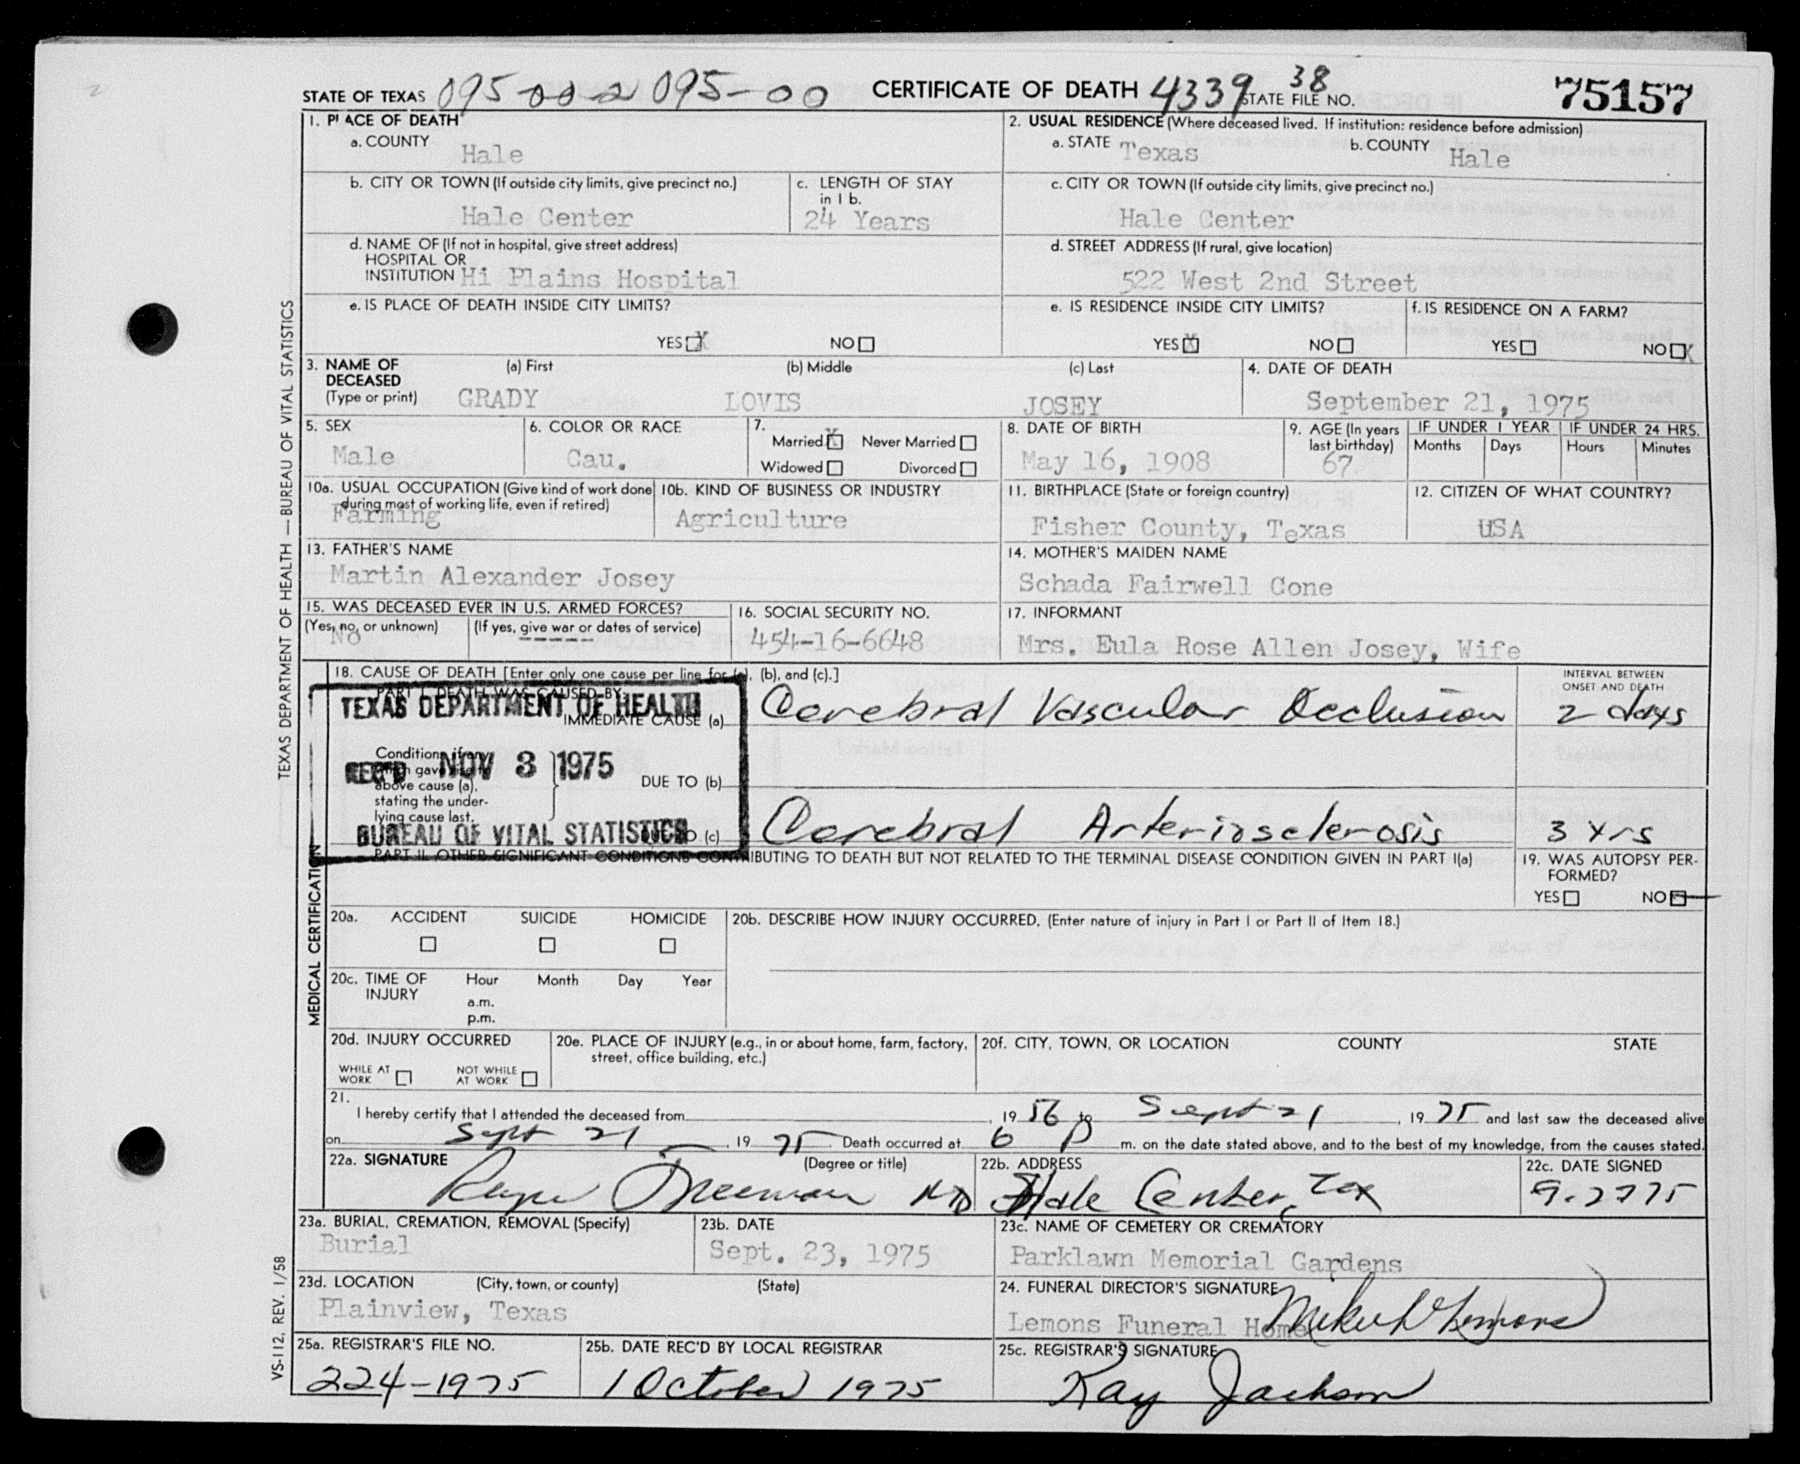 STATE OF TEXAS 095-00-2 095-00 CERTIFICATE OF DEATH 4339 38 STATE FILE NO. 75157
1. PLACE OF DEATH
a. COUNTY Hale
2. USUAL RESIDENCE (Where deceased lived. If institution: residence before admission)
a. STATE Texas b. COUNTY Hale
b. CITY OR TOWN (If outside city limits, give precinct no.)
Hale Center
c. LENGTH OF STAY
in 1 b.
24 Years
c. CITY OR TOWN (If outside city limits, give precinct no.)
Hale Center
d. NAME OF (If not in hospital, give street address)
HOSPITAL OR
INSTITUTION Hi Plains Hospital
d. STREET ADDRESS (If rural, give location)
522 West 2nd Street
e. IS PLACE OF DEATH INSIDE CITY LIMITS?
YES X NO
e. IS RESIDENCE INSIDE CITY LIMITS?
YES X NO
f. IS RESIDENCE ON A FARM?
YES NO X
3. NAME OF
DECEASED
(Type or print)
(a) First (b) Middle (c) Last
GRADY LOVIS JOSEY
4. DATE OF DEATH
September 21, 1975
5. SEX
Male
6. COLOR OR RACE
Cau.
7.
Married X Never Married
Widowed Divorced
8. DATE OF BIRTH
May 16, 1908
9. AGE (In years
last birthday)
67
IF UNDER 1 YEAR IF UNDER 24 HRS.
Months Days Hours Minutes
10a. USUAL OCCUPATION (Give kind of work done
during most of working life, even if retired)
Farming
10b. KIND OF BUSINESS OR INDUSTRY
Agriculture
11. BIRTHPLACE (State or foreign country)
Fisher County, Texas
12. CITIZEN OF WHAT COUNTRY?
USA
13. FATHER'S NAME
Martin Alexander Josey
14. MOTHER'S MAIDEN NAME
Schada Fairwell Cone
15. WAS DECEASED EVER IN U.S. ARMED FORCES?
(Yes, no, or unknown) (If yes, give war or dates of service)
No -----
16. SOCIAL SECURITY NO.
454-16-6648
17. INFORMANT
Mrs. Eula Rose Allen Josey, Wife
18. CAUSE OF DEATH [Enter only one cause per line for (a), (b), and (c).]
PART I. DEATH WAS CAUSED BY:
IMMEDIATE CAUSE (a) Cerebral Vascular Occlusion
INTERVAL BETWEEN
ONSET AND DEATH
2 days
TEXAS DEPARTMENT OF HEALTH
REC'D NOV 3 1975
BUREAU OF VITAL STATISTICS
Conditions, if any,
which gave rise to
above cause (a),
stating the under-
lying cause last.
DUE TO (b)
DUE TO (c) Cerebral Arteriosclerosis 3 yrs
PART II. OTHER SIGNIFICANT CONDITIONS CONTRIBUTING TO DEATH BUT NOT RELATED TO THE TERMINAL DISEASE CONDITION GIVEN IN PART I(a)
19. WAS AUTOPSY PER-
FORMED?
YES NO
20a. ACCIDENT SUICIDE HOMICIDE
20b. DESCRIBE HOW INJURY OCCURRED. (Enter nature of injury in Part I or Part II of Item 18.)
20c. TIME OF
INJURY
Hour Month Day Year
a.m.
p.m.
20d. INJURY OCCURRED
WHILE AT
WORK
NOT WHILE
AT WORK
20e. PLACE OF INJURY (e.g., in or about home, farm, factory,
street, office building, etc.)
20f. CITY, TOWN, OR LOCATION COUNTY STATE
21.
I hereby certify that I attended the deceased from , 19 56 to Sept 21 , 19 75 and last saw the deceased alive
on Sept 21 , 19 75 Death occurred at 6 P m. on the date stated above, and to the best of my knowledge, from the causes stated.
22a. SIGNATURE (Degree or title)
Freeman MD
22b. ADDRESS
Hale Center, Tex
22c. DATE SIGNED
9-2775
23a. BURIAL, CREMATION, REMOVAL (Specify)
Burial
23b. DATE
Sept. 23, 1975
23c. NAME OF CEMETERY OR CREMATORY
Parklawn Memorial Gardens
23d. LOCATION (City, town, or county) (State)
Plainview, Texas
24. FUNERAL DIRECTOR'S SIGNATURE
Lemons Funeral Home Lemons
25a. REGISTRAR'S FILE NO.
224-1975
25b. DATE REC'D BY LOCAL REGISTRAR
1 October 1975
25c. REGISTRAR'S SIGNATURE
Kay Jackson
TEXAS DEPARTMENT OF HEALTH — BUREAU OF VITAL STATISTICS
MEDICAL CERTIFICATION
VS-112, REV. 1/58